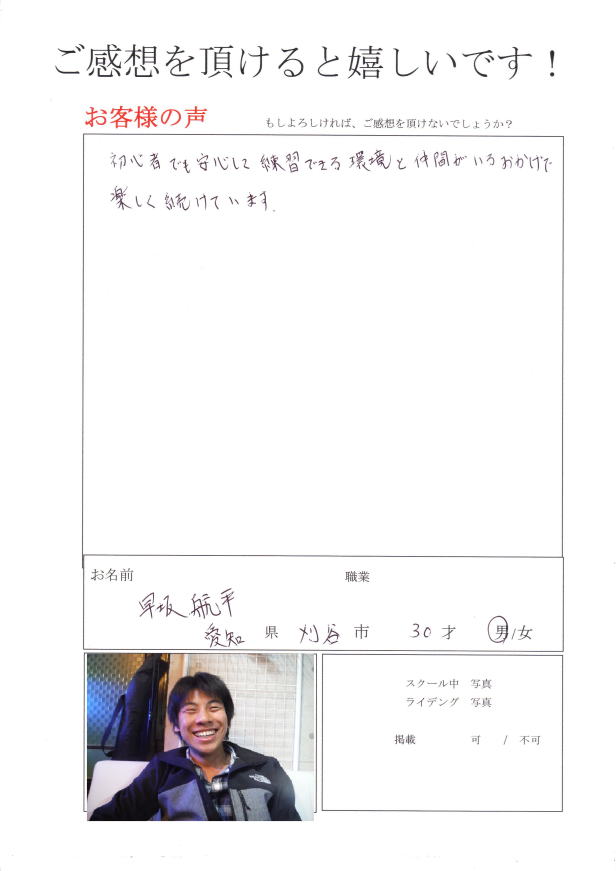 ご感想を頂けると嬉しいです！
お客様の声
もしよろしければ、ご感想を頂けないでしょうか？
初心者でも安心して練習できる環境と仲間がいるおかげで
楽しく続けています。
お名前
職業
早坂 航平
愛知 県 刈谷 市 30 才 男/女
スクール中 写真
ライデング 写真
掲載 可 / 不可
THE NORTH FACE